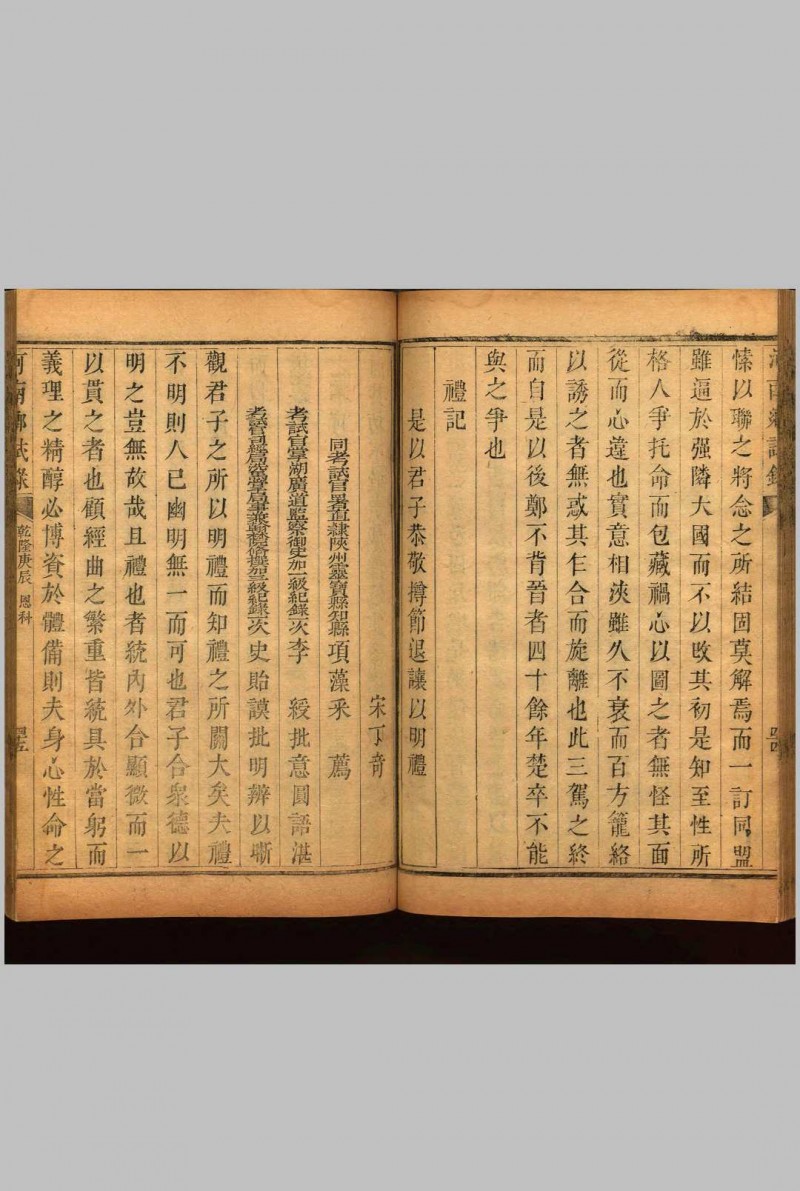 愫以聯之將念之所結固莫解焉而一訂同盟
雖逼於强隣大國而不以攺其初是知至性所
格人爭托命而包藏禍心以圖之者無怪其面
從而心違也實意相浹雖久不衰而百方籠絡
以誘之者無惑其乍合而旋離也此三駕之終
而自是以後鄭不背晉者四十餘年楚卒不能
與之爭也
禮記
是以君子恭敬撙節退讓以明禮
宋丁奇
同考試官署直隷陜州靈寶縣知縣項藻釆薦
考試官掌湖廣道監察御史加一級紀錄一次李綬批意圓語湛
史貽謨批明辨以晣
觀君子之所以明禮而知禮之所關大矣夫禮
不明則人巳幽明無一而可也君子合衆德以
明之豈無故哉且禮也者統內外合顯微而一
以貫之者也顧經曲之繁重皆統具於當躬而
義理之精醇必博資於體備則夫身心性命之
河南鄉試錄 乾隆庚辰恩科